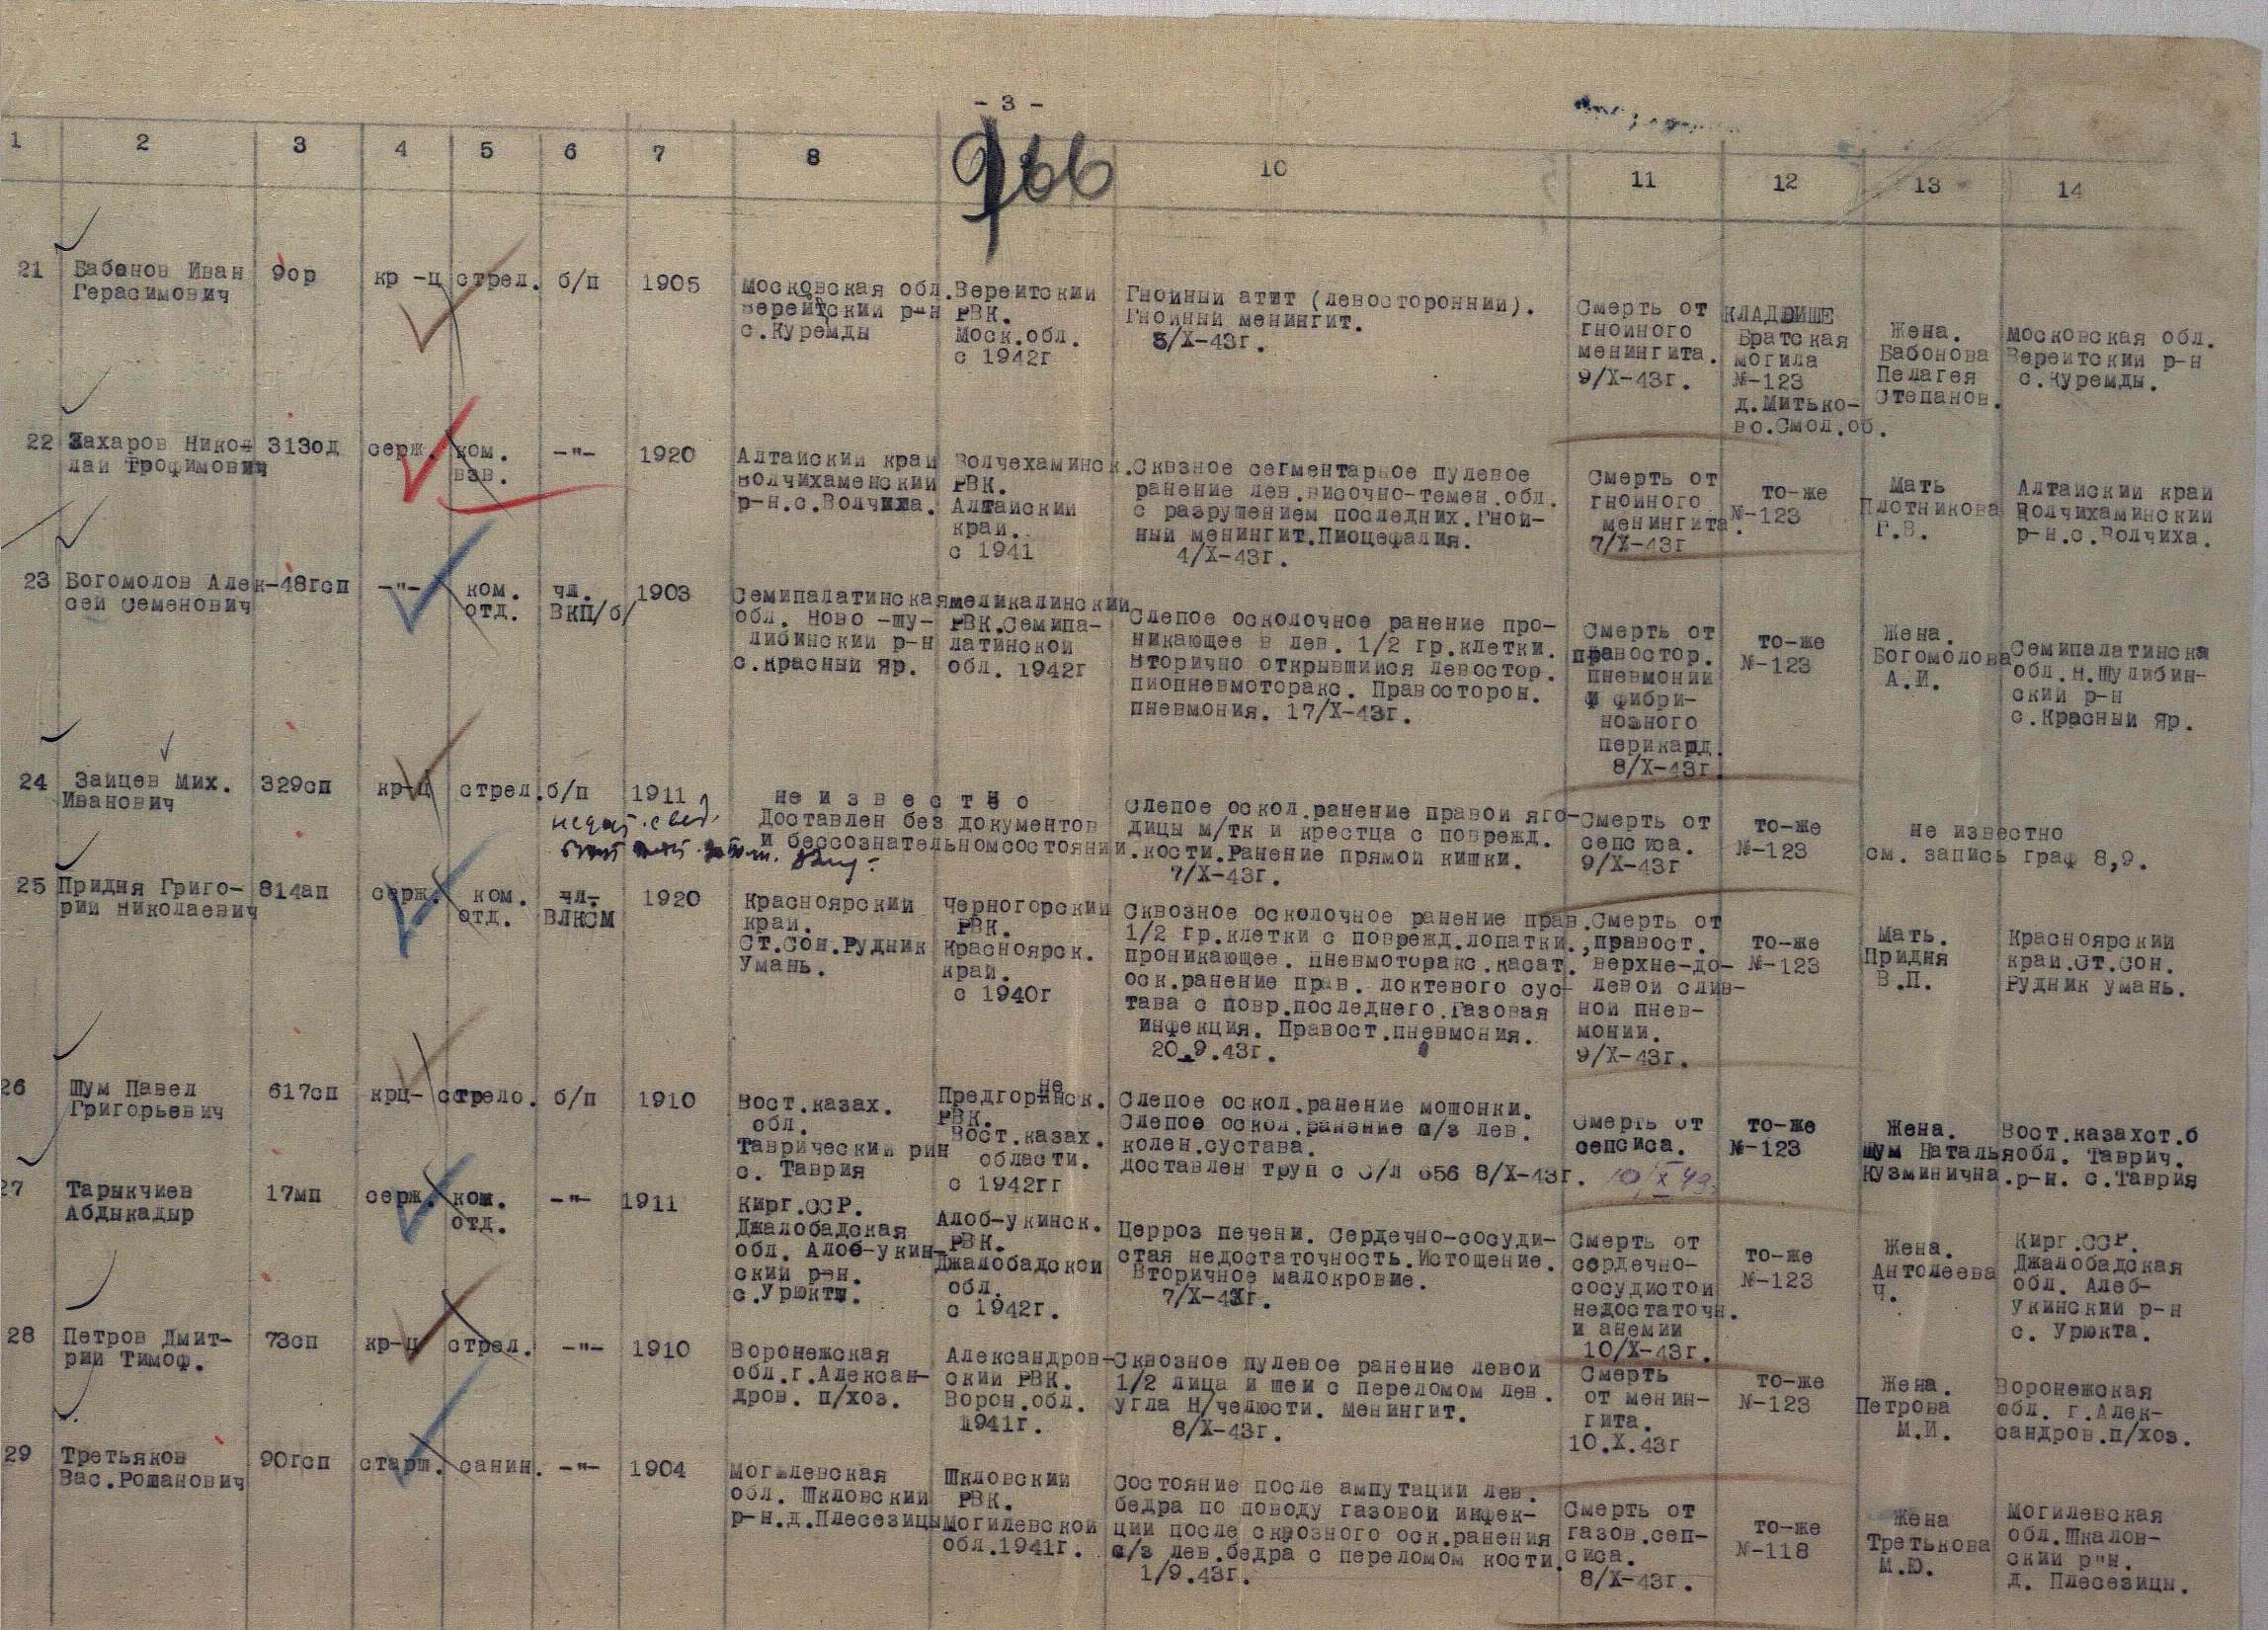 - 3 -
966
1 2 3 4 5 6 7 8 10 11 12 13 14
21
Бабонов Иван
Герасимович
9ор
кр-ц
стрел.
б/п
1905
Московская обл.
Верейтский р-н
с.Куремды
Верейтский
РВК.
Моск.обл.
с 1942г
Гнойный атит (левосторонний).
Гнойный менингит.
5/X-43г.
Смерть от
гнойного
менингита.
9/X-43г.
КЛАДБИШЕ
Братская
могила
№-123
д.Митько-
во.Смол.об.
Жена.
Бабонова
Пелагея
Степанов.
Московская обл.
Верейтский р-н
с.Куремды.
22
Захаров Нико-
лай Трофимович
313од
серж.
ком.
взв.
-"-
1920
Алтайский край
Волчихаменский
р-н.с.Волчиха.
Волчехаминск.
РВК.
Алтайский
край.
с 1941
Сквзное сегментарное пулевое
ранение лев.височно-темен.обл.
с разрушением последних.Гной-
ный менингит.Пиоцефалия.
4/X-43г.
Смерть от
гнойного
менингита.
7/X-43г
то-же
№-123
Мать
Плотникова
Г.В.
Алтайский край
Волчихаминский
р-н.с.Волчиха.
23
Богомолов Алек-
сей Семенович
48гсп
-"-
ком.
отд.
чл.
ВКП/б/
1903
Семипалатинская
обл. Ново-Шу-
либинский р-н
с.Красный Яр.
Меликалинский
РВК.Семипа-
латинской
обл. 1942г
Слепое осколочное ранение про-
никающее в лев. 1/2 гр.клетки.
Вторично открывшийся левостор.
пиопневмоторакс. Правосторон.
пневмония. 17/X-43г.
Смерть от
правостор.
пневмонии
и фибри-
нозного
перикард.
8/X-43г.
то-же
№-123
Жена.
Богомолова
А.И.
Семипалатинска
обл.Н.Шулибин-
ский р-н
с.Красный Яр.
24
Зайцев Мих.
Иванович
329сп
кр-ц
стрел.
б/п
1911
не и з в е с т н о
Доставлен без документов
и бессознательномсостоянии.
Слепое оскол.ранение правой яго-
дицы м/тк и крестца с поврежд.
кости.Ранение прямой кишки.
7/X-43г.
Смерть от
сепсиса.
9/X-43г
то-же
№-123
не известно
см. запись граф 8,9.
25
Придня Григо-
рий Николаевич
814ап
серж.
ком.
отд.
чл-
ВЛКСМ
1920
Красноярский
край.
Ст.Сон.Рудник
Умань.
Черногорский
РВК.
Красноярск.
край.
с 1940г
Сквозное осколочное ранение прав.
1/2 гр.клетки с поврежд.лопатки.,
проникающее. Пневмоторакс.касат.
оск.ранение прав. локтевого сус-
тава с повр.последнего.Газовая
инфекция. Правост.пневмония.
20.9.43г.
Смерть от
правост.
верхне-до-
левой слив-
ной пнев-
монии.
9/X-43г.
то-же
№-123
Мать.
Придня
В.П.
Красноярский
край.Ст.Сон.
Рудник Умань.
26
Шум Павел
Григорьевич
617сп
крц-
стрело.
б/п
1910
Вост.казах.
обл.
Таврический р-н
с. Таврия
Предгорненск.
РВК.
Вост.казах.
области.
с 1942гг
Слепое оскол.ранение мошонки.
Слепое оскол.ранение с/з лев.
колен.сустава.
Доставлен труп с э/л 656 8/X-43г.
Смерть от
сепсиса.
10/X 43г.
то-же
№-123
Жена.
Шум Наталья
Кузминична.
Вост.казахст.б
обл. Таврич.
р-н. с.Таврия
27
Тарыкчиев
Абдыкадыр
17мп
серж.
ком.
отд.
-"-
1911
Кирг.ССР.
Джалобадская
обл. Алоб-укин-
ский р-н.
с.Урюкты.
Алоб-укинск.
РВК.
Джалобадской
обл.
с 1942г.
Церроз печени. Сердечно-сосуди-
стая недостаточность.Истощение.
Вторичное малокровие.
7/X-43г.
Смерть от
сердечно-
сосудистой
недостаточн.
и анемии
10/X-43г.
то-же
№-123
Жена.
Антолеева
Ч.
Кирг.ССР.
Джалобадская
обл. Алеб-
укинский р-н
с. Урюкта.
28
Петров Дмит-
рий Тимоф.
73сп
кр-ц
стрел.
-"-
1910
Воронежская
обл.г.Алексан-
дров. п/хоз.
Александров-
ский РВК.
Ворон.обл.
1941г.
Сквозное пулевое ранение левой
1/2 лица и шеи с переломом лев.
угла Н/челюсти. Менингит.
8/X-43г.
Смерть
от менин-
гита.
10.X.43г
то-же
№-123
Жена.
Петрова
М.И.
Воронежская
обл. г.Алек-
сандров.п/хоз.
29
Третьяков
Вас.Романович
90гсп
старш.
санин.
-"-
1904
Могилевская
обл. Шкловский
р-н.д.Плесезицы
Шкловский
РВК.
Могилевской
обл.1941г.
Состояние после ампутации лев.
бедра по поводу газовой инфек-
ции после сквозного оск.ранения
с/з лев.бедра с переломом кости.
1/9.43г.
Смерть от
газов.сеп-
сиса.
8/X-43г.
то-же
№-118
Жена
Третькова
М.Ю.
Могилевская
обл.Шкалов-
ский р"н.
д. Плесезицы.